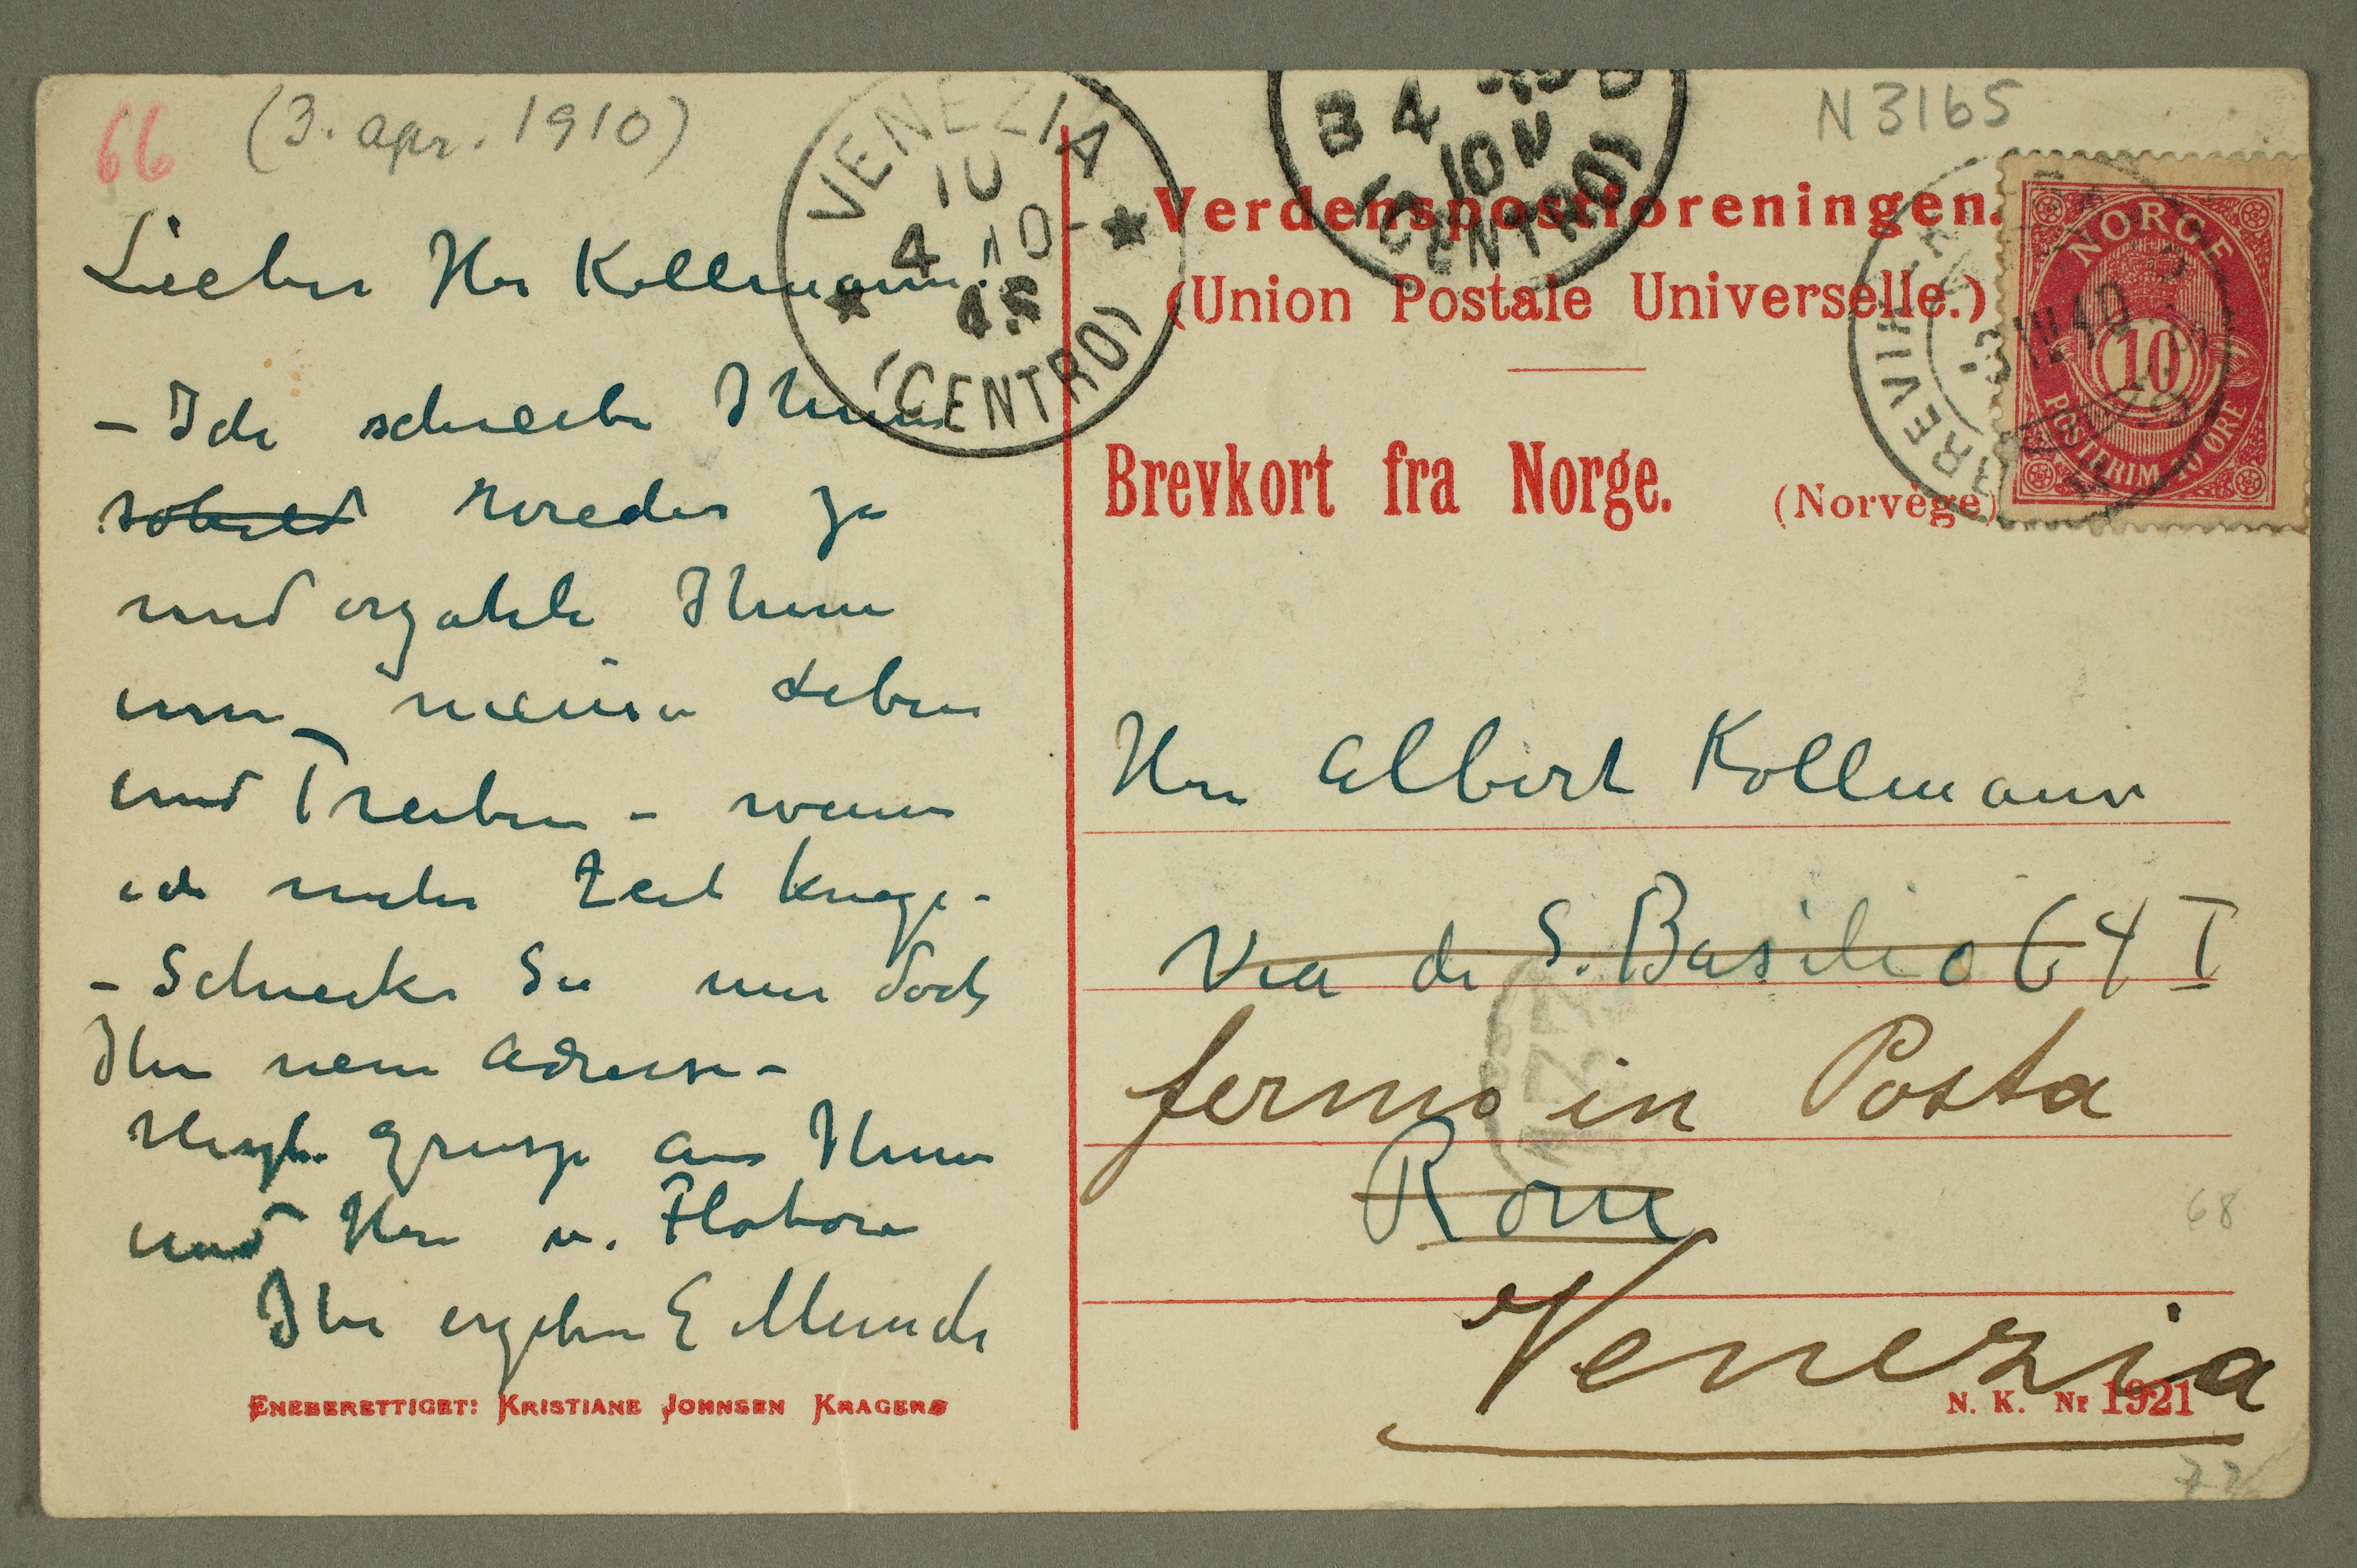 66 (3. apr. 1910)
N 3165
Lieber Herr Kollmann!
– Ich schreibe Ihnen
sobald wieder ja
und erzahle Ihnen
meinen Leben
und Treiben – wenn
ich mehr Zeit kriege –
– Schicken Sie mir doch
Ihre neue Adresse –
Herzl. Grusse an Ihnen
und Herr v. Flotow
Ihr ergeben E Munch
ENEBERETTIGET: KRISTIANE JOHNSEN KRAGERØ
VENEZIA
10
4 10
(CENTRO)
4
10
(CENTRO)
Verdenspostforeningen.
(Union Postale Universelle.)
Brevkort fra Norge. (Norvège)
NORGE
10
POSTFRIM. 10 ØRE
3 IV 10
Herr Albert Kollmann
Via di S. Basilio 64 I
fermo in Posta
Rom
68
Venezia
N. K. Nr 1921